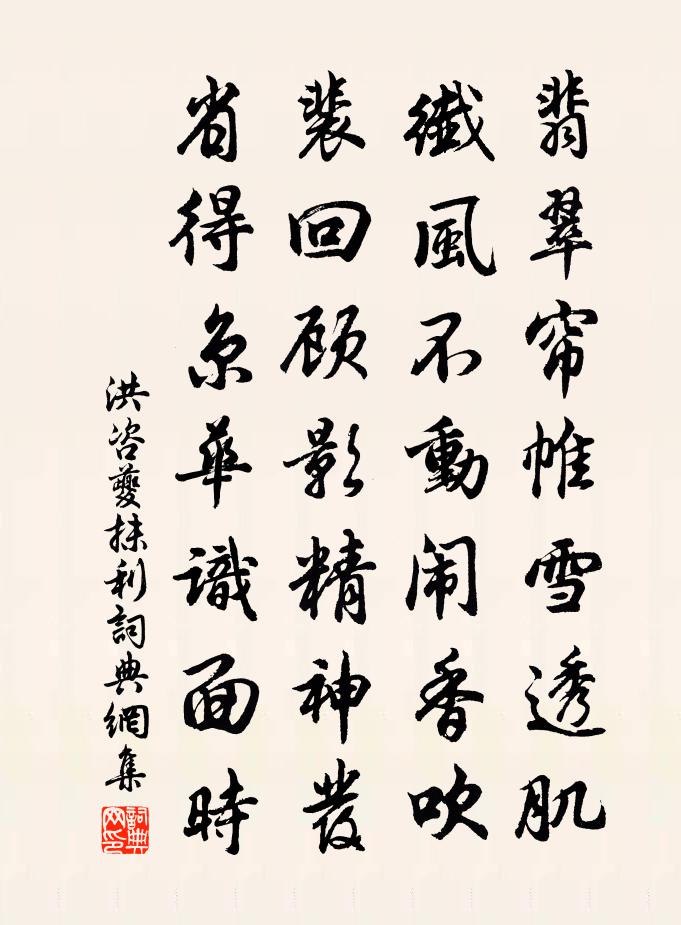 翡翠帘帷雪透肌
纖風不動闹香吹
裴回顾影精神發
省得京華識面時
洪咨夔抹利詞典網集
詞典網印